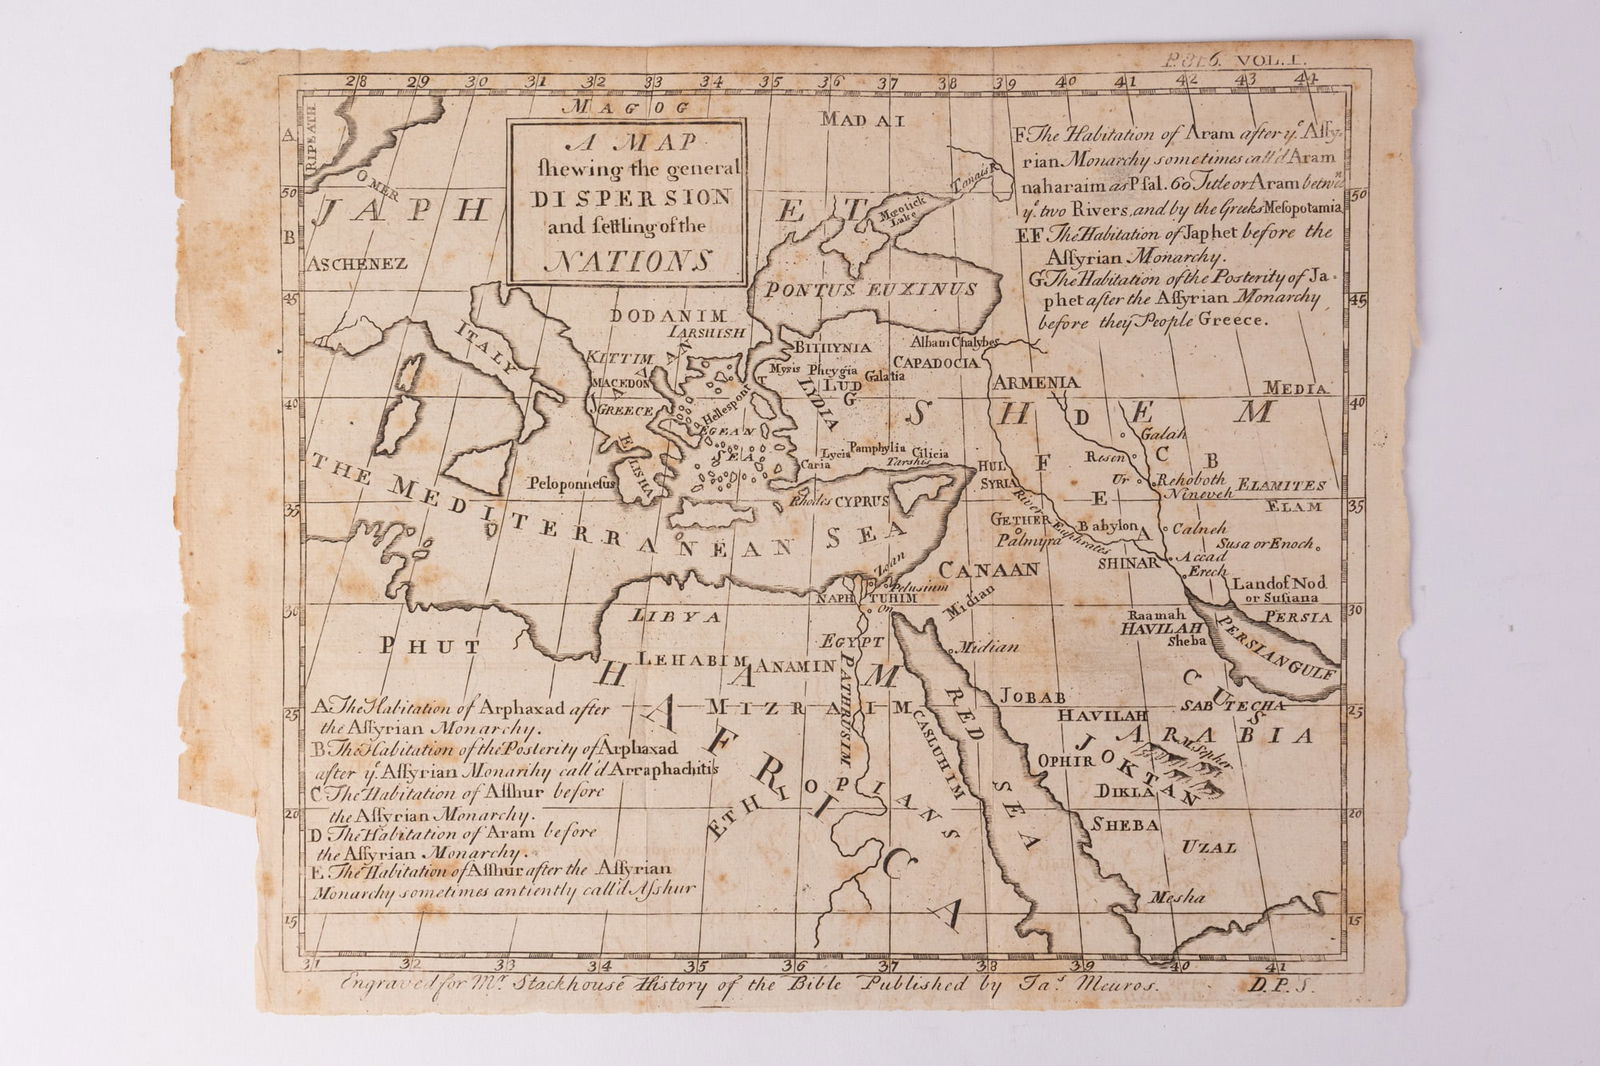 P. 316. VOL. I.
28 29 30 31 32 33 34 35 36 37 38 39 40 41 42 43 44
MAGOG
A MAP
shewing the general
DISPERSION
and settling of the
NATIONS
MADAI
F The Habitation of Aram after yͤ Assy-
rian Monarchy sometimes call'd Aram
naharaim as Psal. 60 Title or Aram betwⁿ
yͤ two Rivers, and by the Greeks Mesopotamia
EF The Habitation of Japhet before the
Assyrian Monarchy.
G The Habitation of the Posterity of Ja-
phet after the Assyrian Monarchy
before they People Greece.
A
RIPHEATH
50
OMER
JAPHET
Tanais R
Mœotick
Lake
50
B
ASCHENEZ
45
PONTUS EUXINUS
45
DODANIM
TARSHISH
ITALY
KITTIM
JAVAN
BITHYNIA
Albam Chalybes
MACEDON
Mysis Phrygia
CAPADOCIA
LUD
Galatia
ARMENIA
MEDIA
40
GREECE
Hellespont
LYDIA
G
SHEM
D
40
EGEAN
SEA
Galah
ELISHA
Lycia
Pamphylia
Cilicia
Caria
Tarshis
HUL
F
Resen
C
B
THE MEDITERRANEAN SEA
Peloponnesus
Rhodes
CYPRUS
SYRIA
Ur
Rehoboth
Nineveh
ELAMITES
35
E
ELAM
35
River Euphrates
GETHER
Palmyra
Babylon
A
Calneh
Susa or Enoch
SHINAR
Accad
Erech
CANAAN
Zoan
Pelusium
Land of Nod
or Susiana
30
LIBYA
NAPHTUHIM
On
Midian
Raamah
HAVILAH
Sheba
PERSIA
30
PHUT
EGYPT
Midian
PERSIAN GULF
LEHABIM
ANAMIN
HAM
PATHRUSIM
JOBAB
CUSH
SABTECHA
25
MIZRAIM
CASLUHIM
RED SEA
HAVILAH
25
A The Habitation of Arphaxad after
the Assyrian Monarchy.
B The Habitation of the Posterity of Arphaxad
after yͤ Assyrian Monarihy call'd Arraphachitis
C The Habitation of Asshur before
the Assyrian Monarchy.
D The Habitation of Aram before
the Assyrian Monarchy.
E The Habitation of Asshur after the Assyrian
Monarchy sometimes antiently call'd Asshur
AFRICA
ARABIA
M. Sephar
OPHIR
JOKTAN
DIKLA
ETHIOPIANS
20
SHEBA
20
UZAL
Mesha
15
15
31 32 33 34 35 36 37 38 39 40 41
Engraved for Mr. Stackhouse History of the Bible Published by Jaˢ. Meuros.
D.P.S.